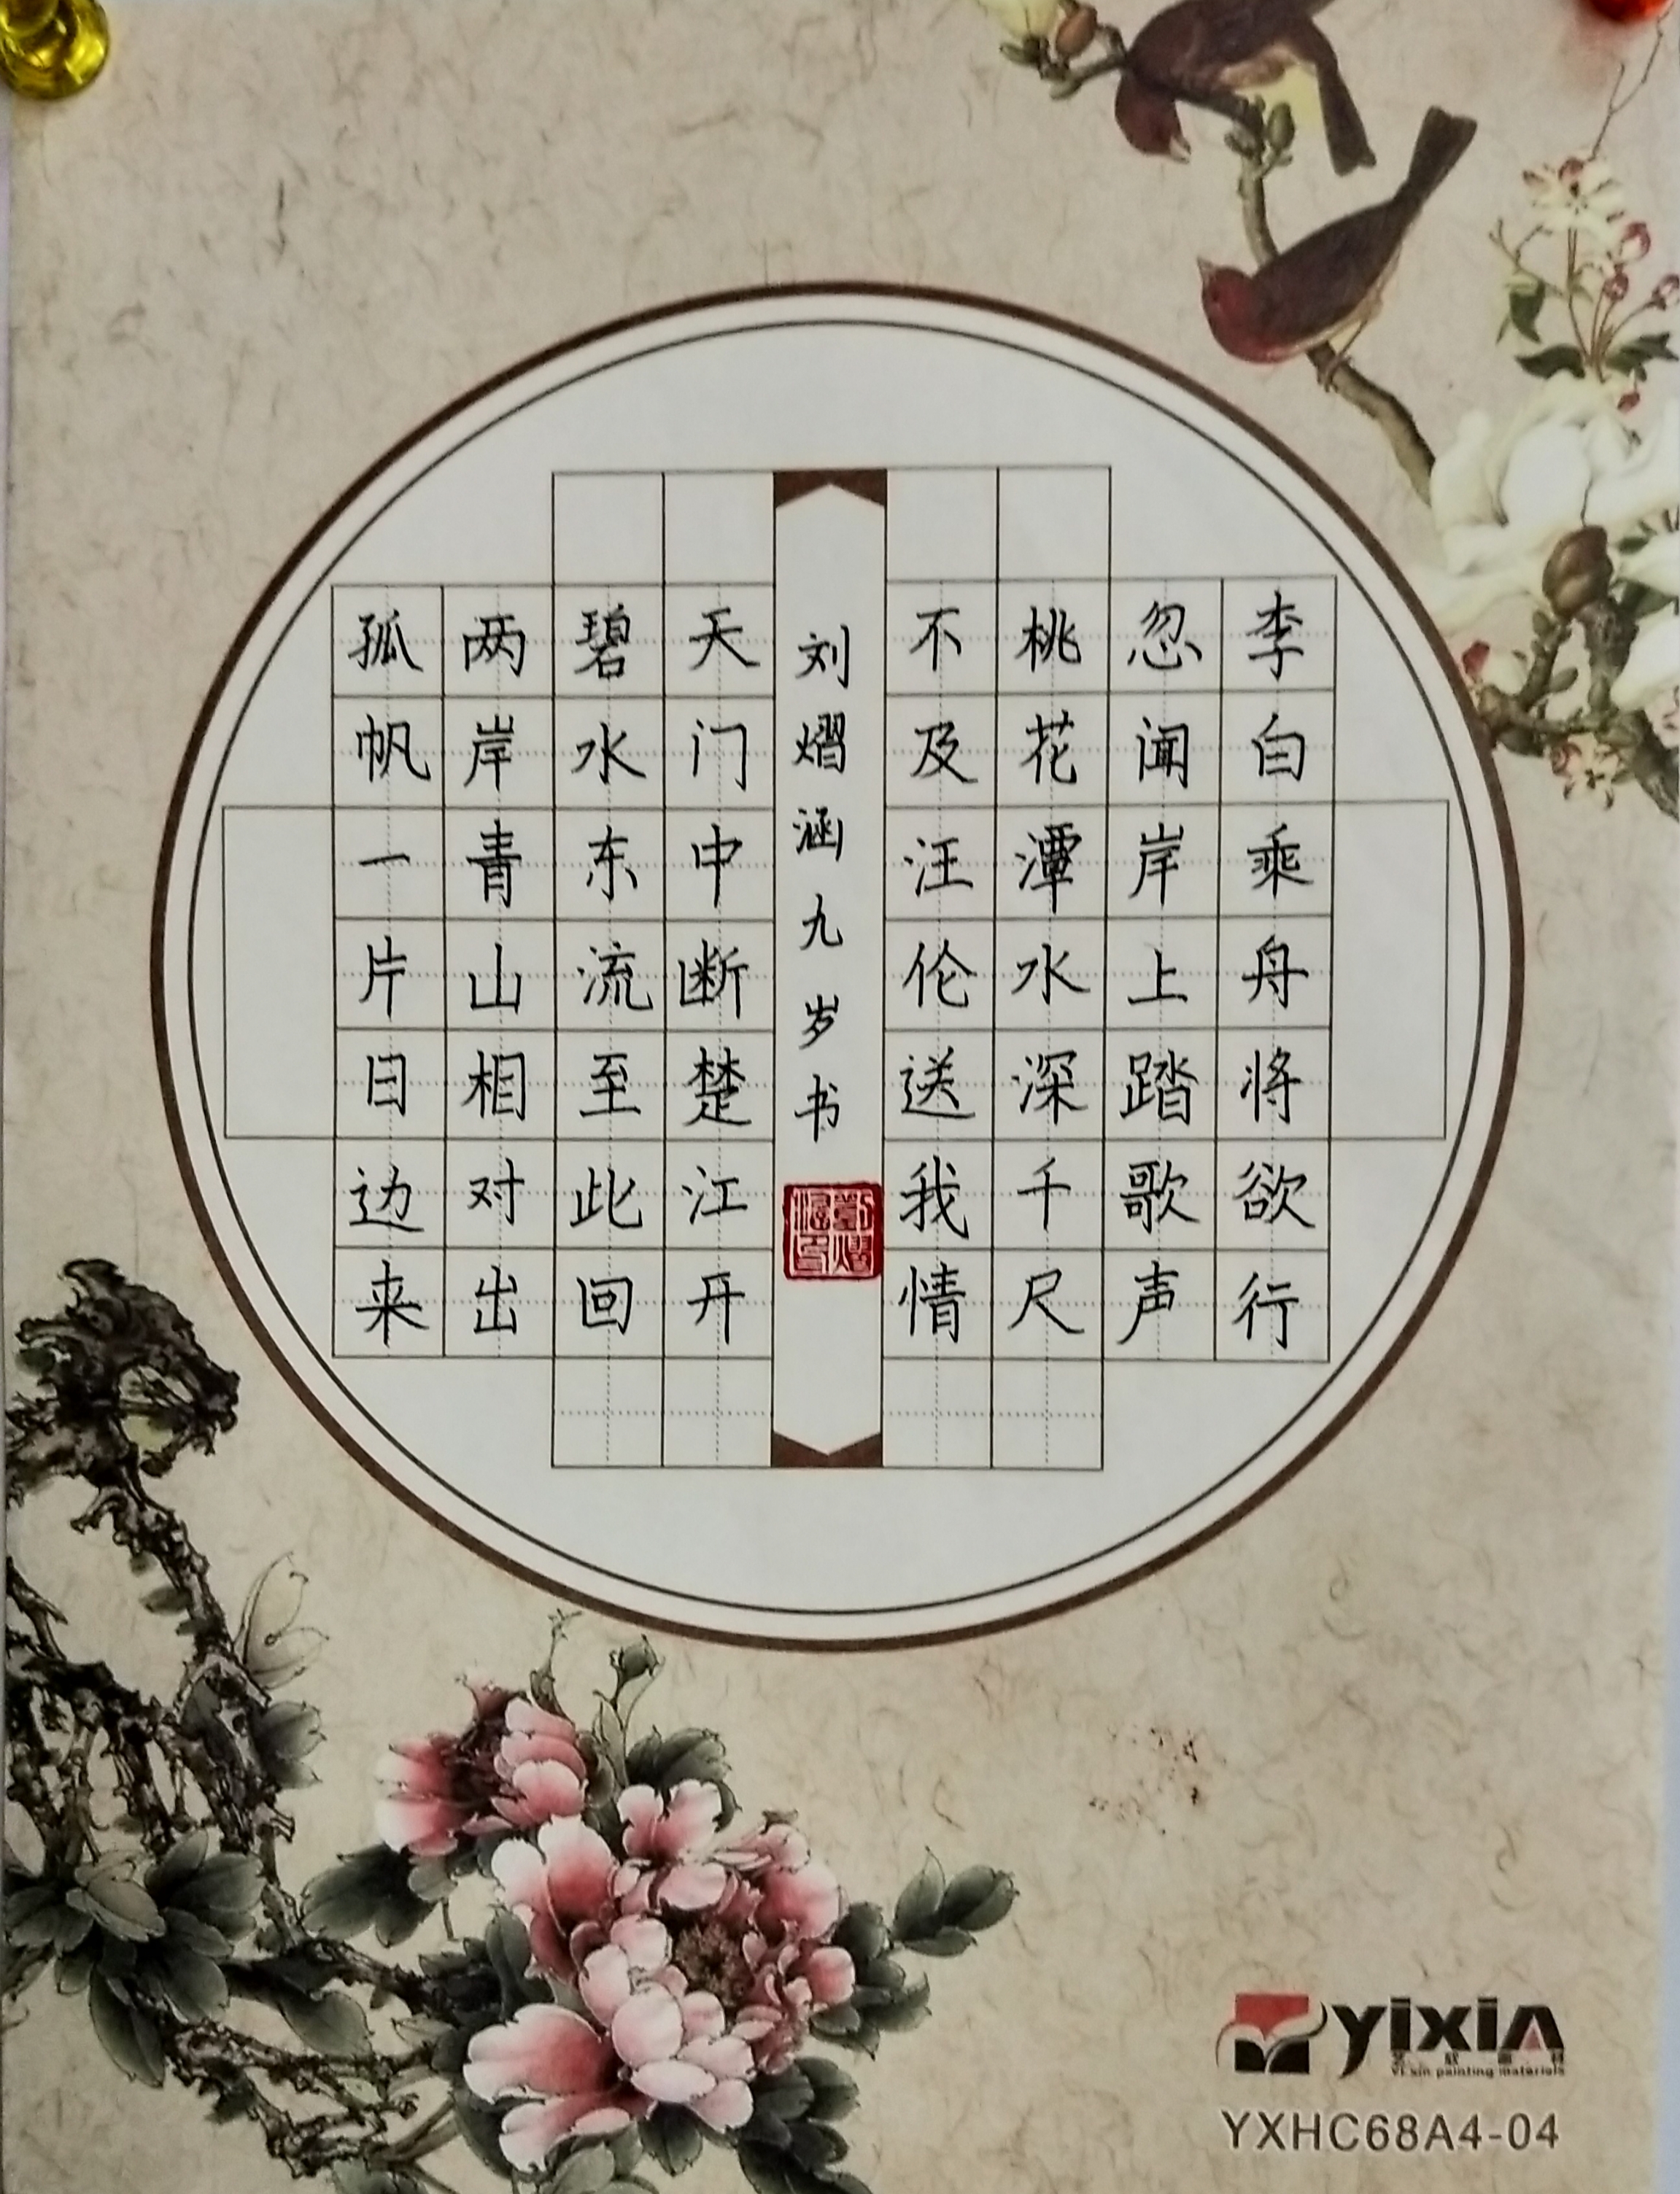 李白乘舟将欲行
忽闻岸上踏歌声
桃花潭水深千尺
不及汪伦送我情
刘熠涵九岁书
天门中断楚江开
碧水东流至此回
两岸青山相对出
孤帆一片日边来
yixin
Yi xin painting materials
YXHC68A4-04